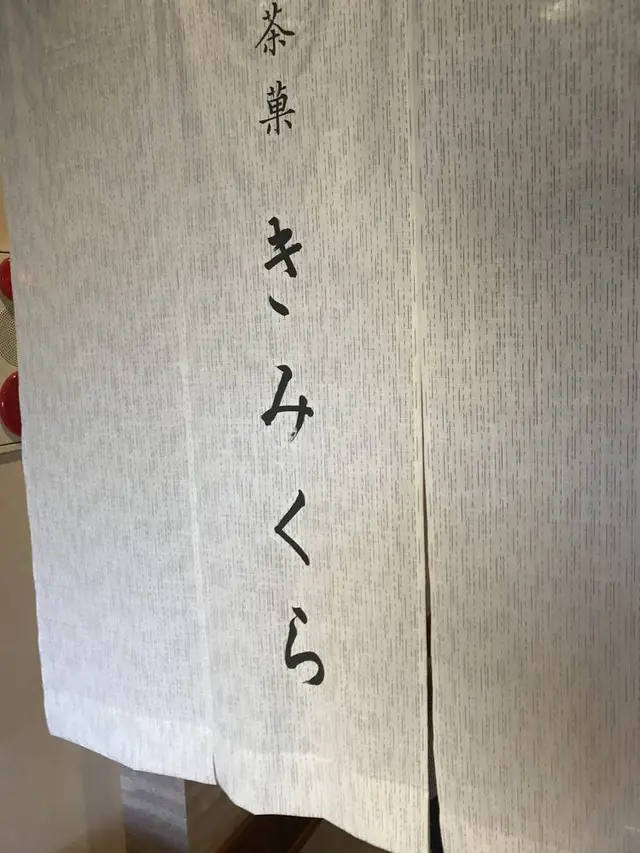 茶菓きみくら